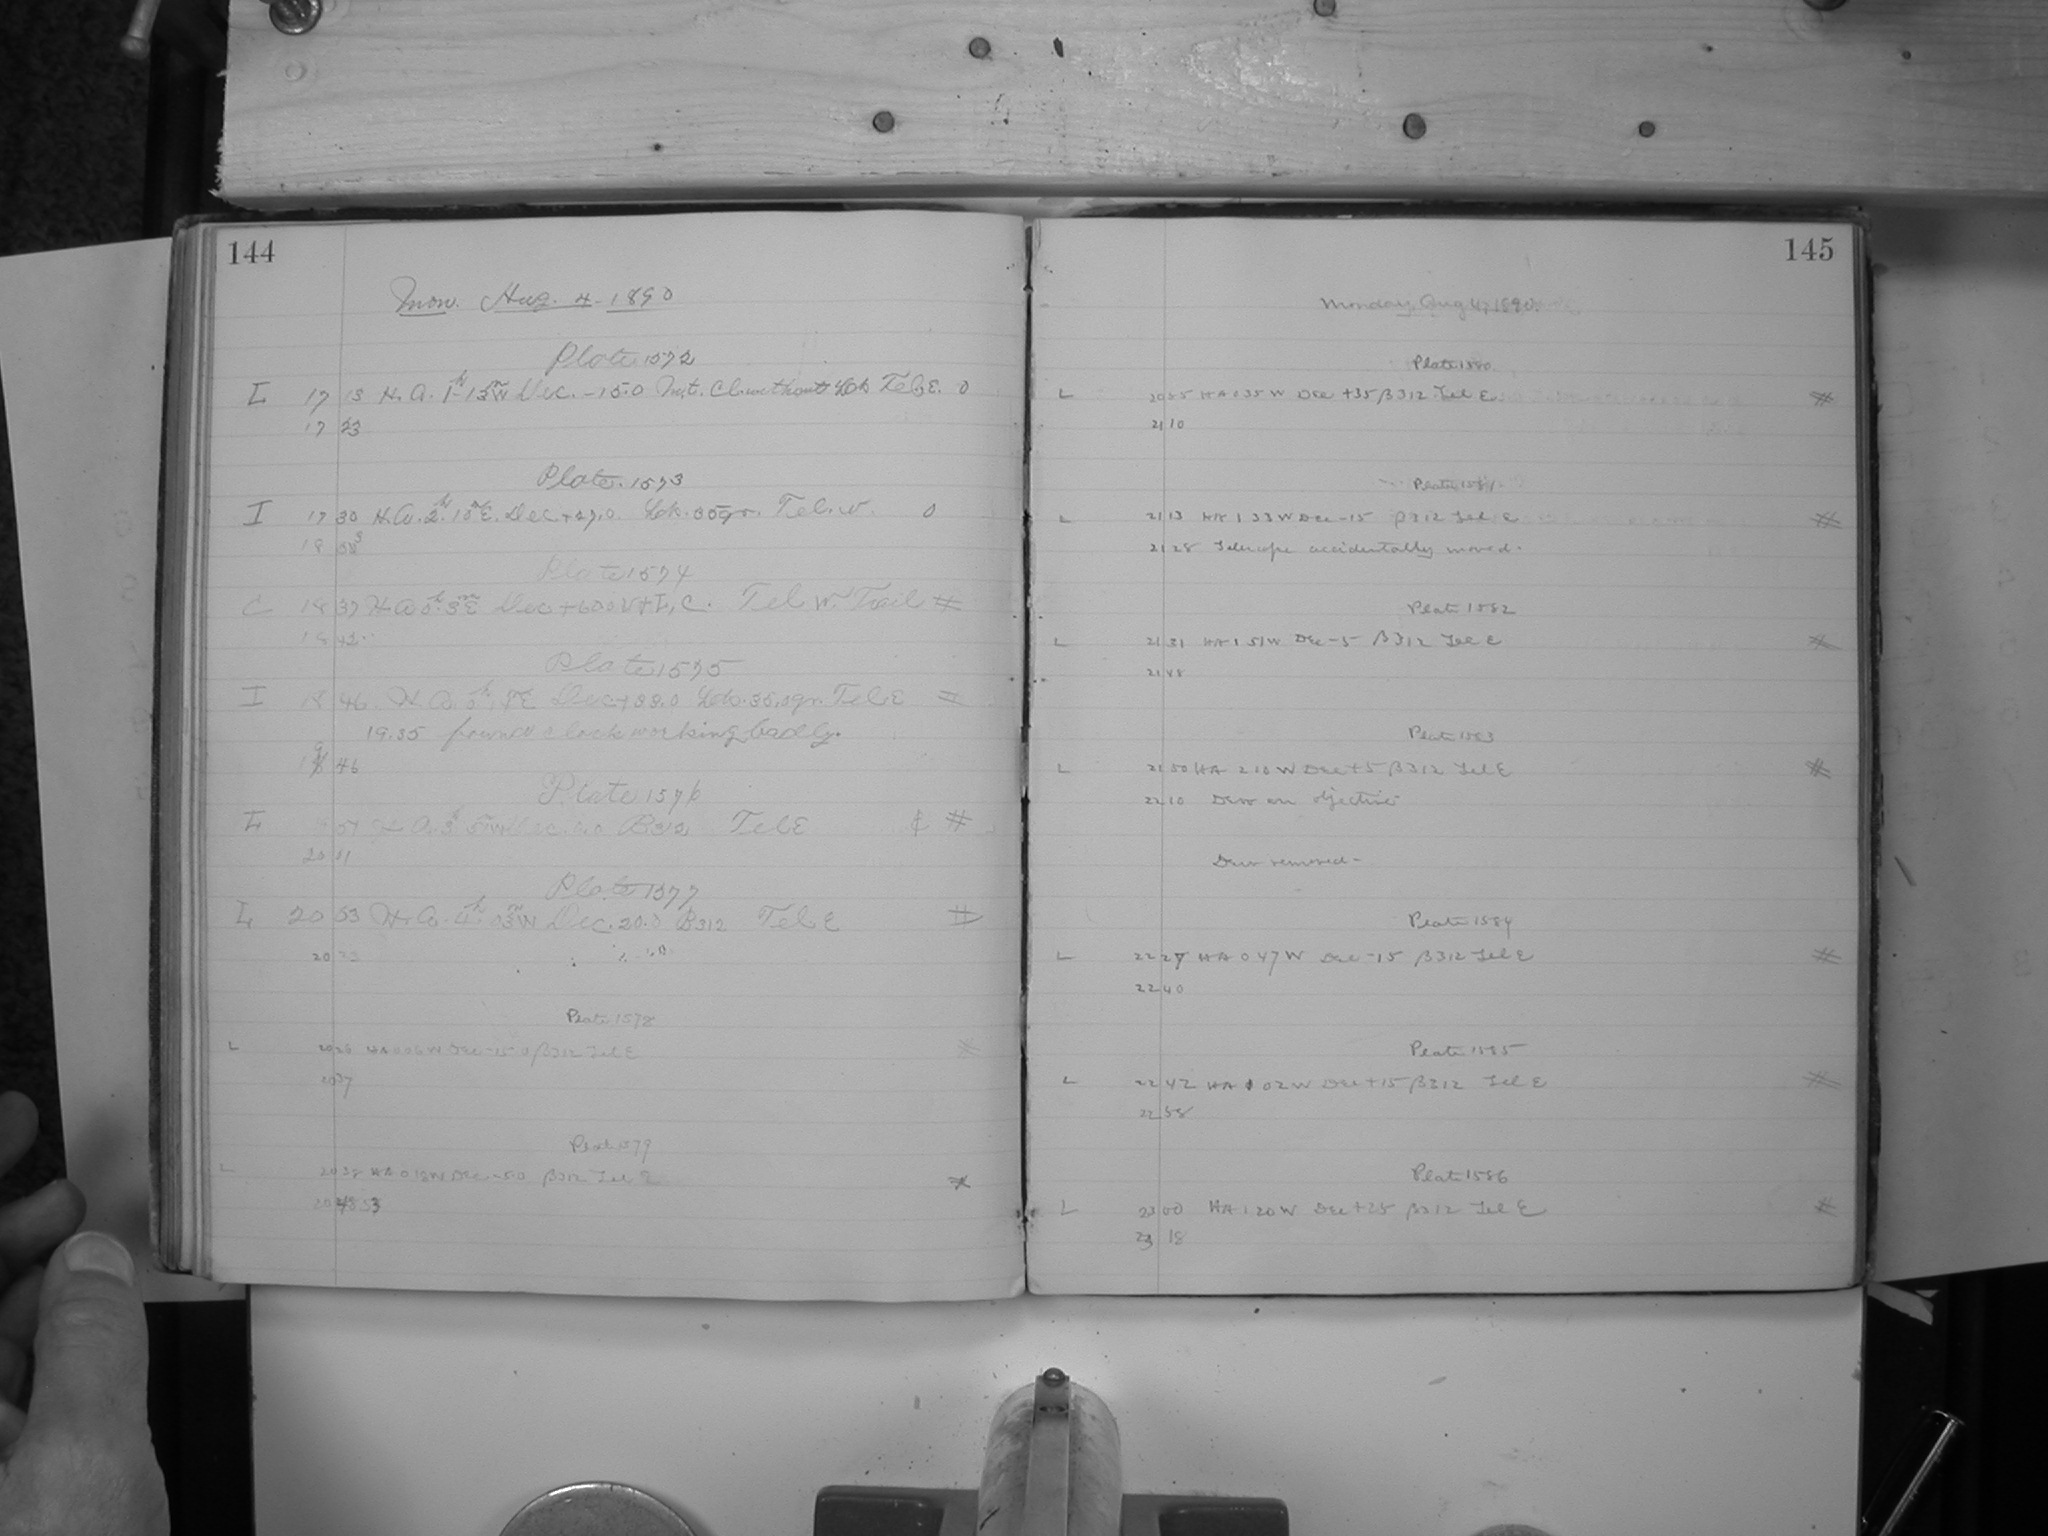 144
Mon. Aug. 4-1890
Plate 1572
I 17 15 H.A. 1h-15mW Dec. -15.0 Inst. Cl. without Tel. E. 0
17 23
Plate 1573
I 17 30 H.A. 2h.15mE. Dec. +27.0. Tel. W. 0
18
Plate 1574
C 18 37 H A 0h.3mE Dec +60.0 I, C. Tel W. Trail #
18 42
Plate 1575
I 18 46 H.A. Dec +33.0 Tel E #
19.35 found clock working badly.
19 46
Plate 1576
I 51 H A. 3h Dec. B312 Tel E #
20 01
Plate 1577
I 20 53 H.A. 4h 03mW Dec. 20.0 B312 Tel E #
20 23
Plate 1578
L 20 26 HA 0 06 W Dec -15 0 β312 Tel E #
20 37
Plate 1579
L 20 38 HA 0 18 W Dec -5 0 β312 Tel E #
20 53
145
Monday, Aug 4, 1890.
Plate 1580
L 20 55 HA 0 35 W Dec +35 β312 Tel E #
21 10
Plate 1581
L 21 13 HA 1 33 W Dec -15 β312 Tel E #
21 28 Telescope accidentally moved.
Plate 1582
L 21 31 HA 1 51 W Dec -5 β312 Tel E #
21 48
Plate 1583
L 21 50 HA 2 10 W Dec +5 β312 Tel E #
22 10 Dew on objective
Dew removed-
Plate 1584
L 22 27 HA 0 47 W Dec -15 β312 Tel E #
22 40
Plate 1585
L 22 42 HA 1 02 W Dec +15 β312 Tel E #
22 58
Plate 1586
L 23 00 HA 1 20 W Dec +25 β312 Tel E #
23 18